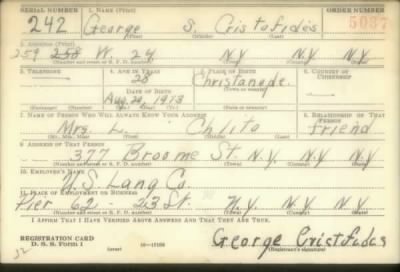 SERIAL NUMBER 1. NAME (Print) ORDER NUMBER
242 George S. Cristofides 5087
(First) (Middle) (Last)
2. ADDRESS (Print)
259 258 W. 24 N.Y N.Y N.Y.
(Number and street or R. F. D. number) (Town) (County) (State)
3. TELEPHONE 4. AGE IN YEARS 5. PLACE OF BIRTH 6. COUNTRY OF
28 Christanade.
DATE OF BIRTH (Town or county)
Aug. 29, 1913
(Exchange) (No.) (Mo.) (Day) (Yr.) (State or country)
7. NAME OF PERSON WHO WILL ALWAYS KNOW YOUR ADDRESS 8. RELATIONSHIP OF THAT PERSON
Mrs. L. Chlito friend
(Mr., Mrs., Miss) (First) (Middle) (Last)
9. ADDRESS OF THAT PERSON
377 Broome St N.Y. N.Y N.Y
(Number and street or R. F. D. number) (Town) (County) (State)
10. EMPLOYER'S NAME
W. S. Lang Co.
11. PLACE OF EMPLOYMENT OR BUSINESS
Pier 62 - 23 St. N.Y. N.Y N.Y
(Number and street or R. F. D. number) (Town) (County) (State)
I AFFIRM THAT I HAVE VERIFIED ABOVE ANSWERS AND THAT THEY ARE TRUE.
REGISTRATION CARD
D. S. S. Form 1 (over) 16—17105 George Cristofides
(Registrant's signature)